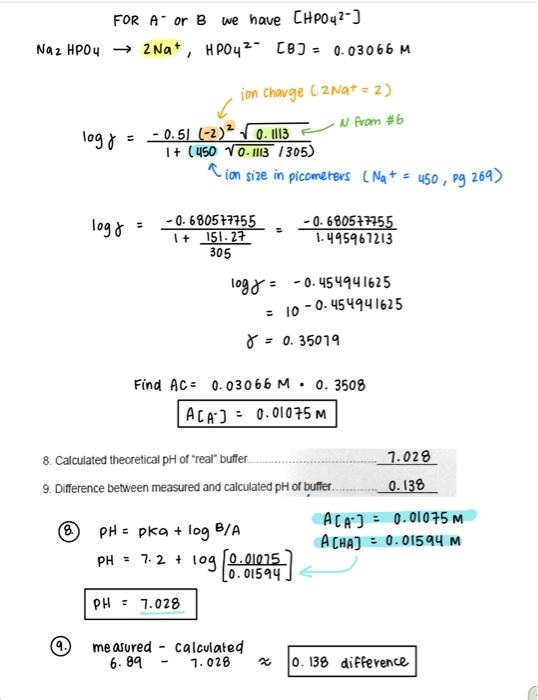 FOR A⁻ or B we have [HPO4²⁻]
Na2HPO4 → 2Na⁺, HPO4²⁻ [B] = 0.03066 M
ion charge (2Na⁺ = 2)
log γ = -0.51 (-2)² √0.1113 / 1 + (450 √0.1113 / 305)
N from #6
ion size in picometers (Na⁺ = 450, pg 269)
log γ = -0.680577755 / 1 + 151.27/305 = -0.680577755 / 1.495967213
log γ = -0.454941625
= 10^-0.454941625
γ = 0.35079
Find AC = 0.03066 M • 0.3508
A[A⁻] = 0.01075 M
8. Calculated theoretical pH of "real" buffer 7.028
9. Difference between measured and calculated pH of buffer 0.138
A[A⁻] = 0.01075 M
A[HA] = 0.01594 M
8. PH = pka + log B/A
PH = 7.2 + log [0.01075 / 0.01594]
PH = 7.028
9. measured - calculated
6.89 - 7.028 ≈ 0.138 difference